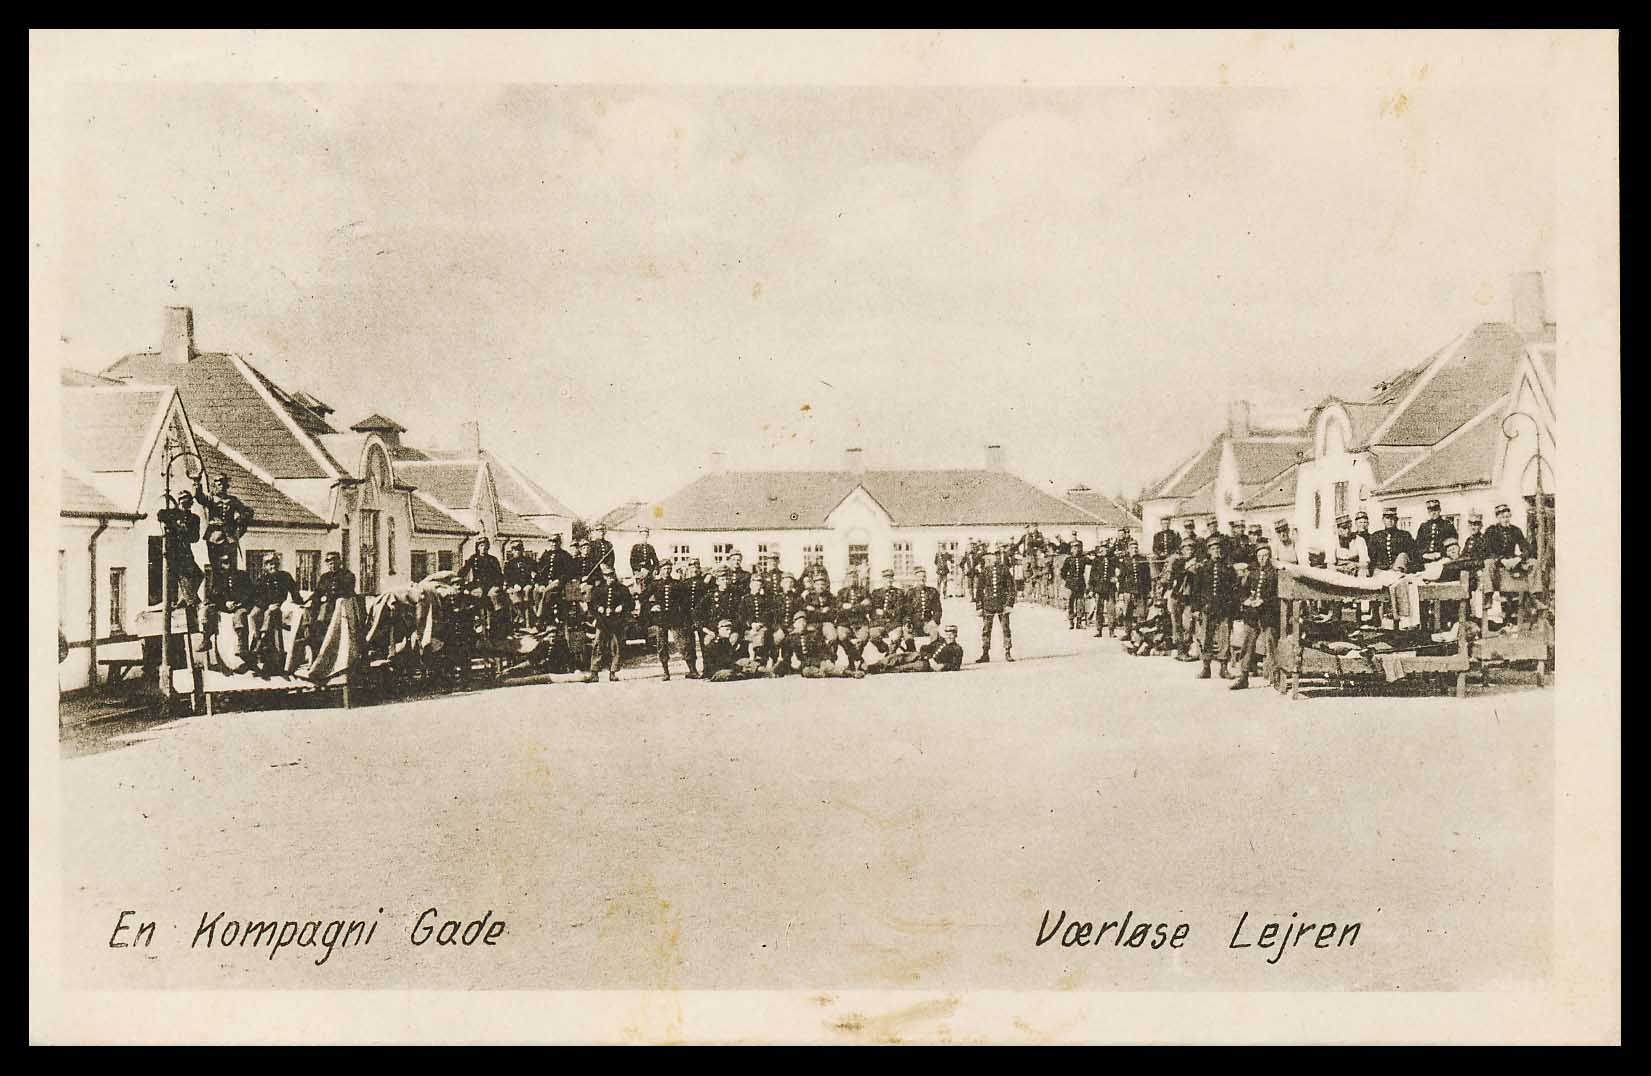 En Kompagni Gade
Værløse Lejren